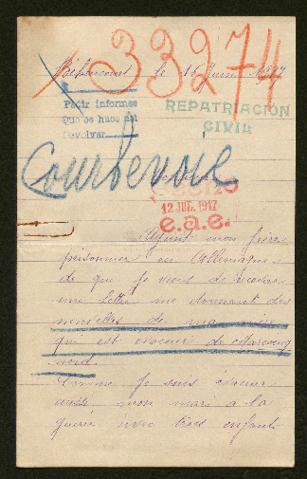 33274
le 16 Juin 1917
Pedir informes
Que se haga así
Devolver
REPATRIACIÓN
CIVIL
Courbevoie
12 JUL. 1917
e.a.e.
Ayant mon frère
prisonnier en Allemagne
de que je viens de recevoir
une lettre me donnant des
nouvelles de ma
qui est évacuée de
nord.
Comme je suis évacuée
aussi mon mari a la
guerre avec trois enfants